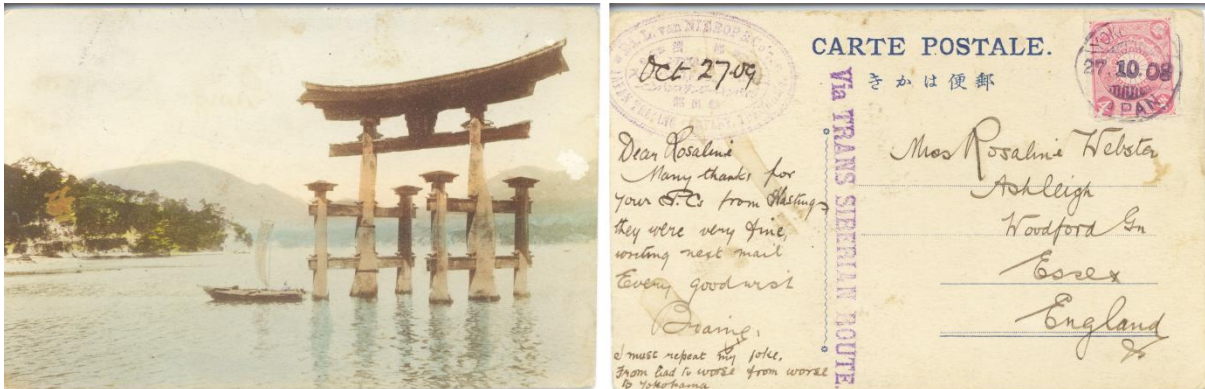 L. van NIEROP & Co.
Oct 27-09
CARTE POSTALE.
きかは便郵
YOKO
27.10.08
JAPAN
Via TRANS SIBERIAN ROUTE.
Dear Rosaline
Many thanks for
your P.Cs from Hastings
they were very fine,
writing next mail
Every good wish
I must repeat my joke,
From bad to worse from worse
to Yokohama
Miss Rosaline Webster
Ashleigh
Woodford Gn
Essex
England